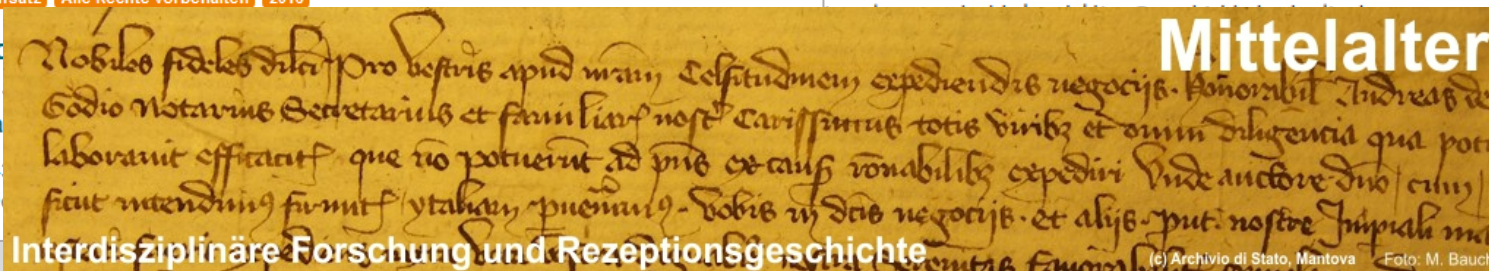 Alle Rechte vorbehalten 2016
Mittelalter
Nobiles fideles dilcti Pro vestris apud nram Celsitudinem expediendis negocijs. honorabil Andreas de
Godio Notarius Secretarius et familiar nost Carissimus totis viribz et omni diligencia qua poti
laborauit efficacit que no potuerut ad pns ex caus ronabilibz expediri Vnde auctore dno cum
sicut intendimus firmit ytaliam puenimus. vobis in dcis negocijs. et alijs put nostre Impiali ma
Interdisziplinäre Forschung und Rezeptionsgeschichte
(c) Archivio di Stato, Mantova Foto: M. Bauch